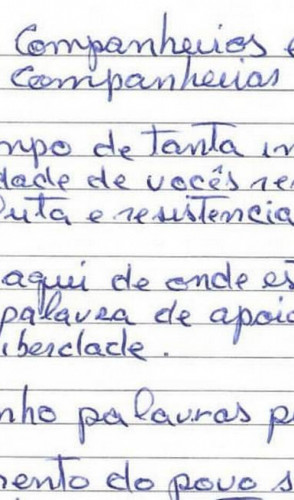 Companheiros e
Companheiras
mpo de tanta in
dade de vocês re
luta e resistencia
aqui de onde es
palavra de apoio
iberdade.
nho palavras p
mento do povo s